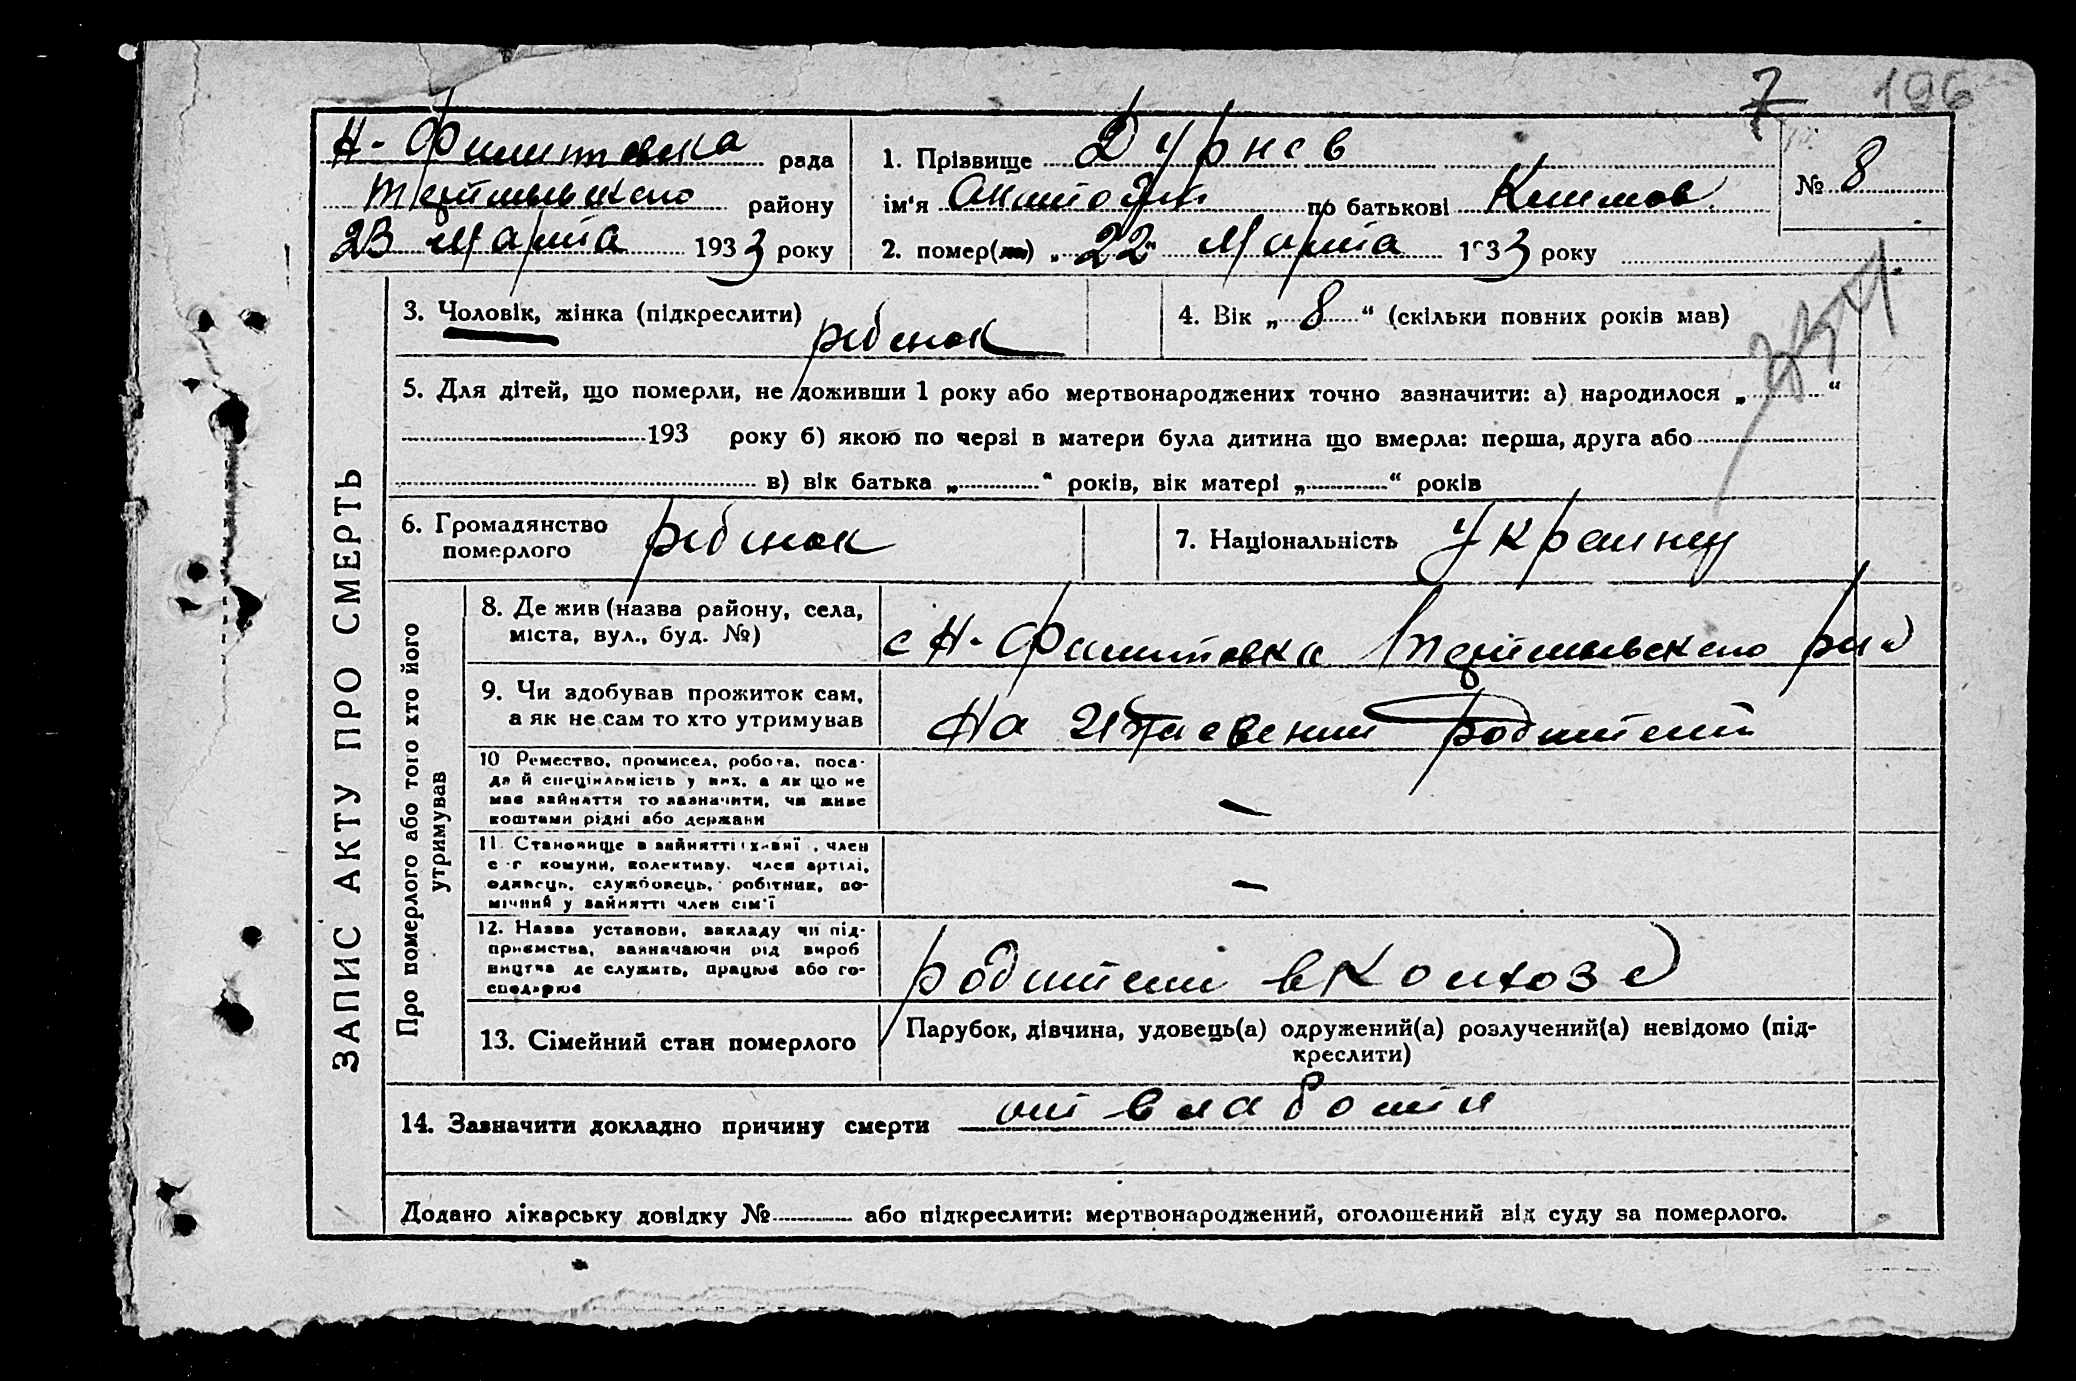 7 196
Н-Филитовка рада
района
23 Марта 1933 року
1. Прізвище Дурнев
ім'я по батькові Климов.
№ 8
2. помер(ла) „ 22 " Марта 1933 року
ЗАПИС АКТУ ПРО СМЕРТЬ
3. Чоловік, жінка (підкреслити) ребенок
4. Вік „ 8 “ (скільки повних років мав)
5. Для дітей, що померли, не доживши 1 року або мертвонароджених точно зазначити: а) народилося „ “
193 року б) якою по черзі в матери була дитина що вмерла: перша, друга або
в) вік батька „ “ років, вік матері „ “ років
6. Громадянство
померлого ребенок
7. Національність Украинец
Про померлого або того хто його
утримував
8. Де жив (назва району, села,
міста, вул., буд. №)
с Н-Филитовка
9. Чи здобував прожиток сам,
а як не сам то хто утримував
На родителей
10 Ремество, промисел, робота, поса-
да й спеціальність у них, а як що не
має зайняття то зазначити, чи живе
коштами рідні або держави
—
11. Становище в зайнятті член
с-г комуни, колективу, член артілі,
одинець, службовець, робітник, по-
мічний у зайнятті член сім'ї
—
12. Назва установи, закладу чи під-
приємства, зазначаючи рід вироб
ництва де служить, працює або го-
сподарює
родители в Колхозе
13. Сімейний стан померлого
Парубок, дівчина, удовець(а) одружений(а) розлучений(а) невідомо (під-
креслити)
14. Зазначити докладно причину смерти от влабости
Додано лікарську довідку № або підкреслити: мертвонароджений, оголошений від суду за померлого.